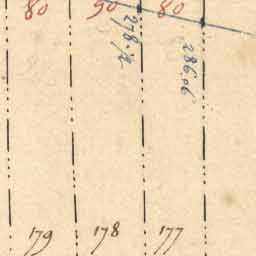 80 90 80
278.72
286.06
179 178 177